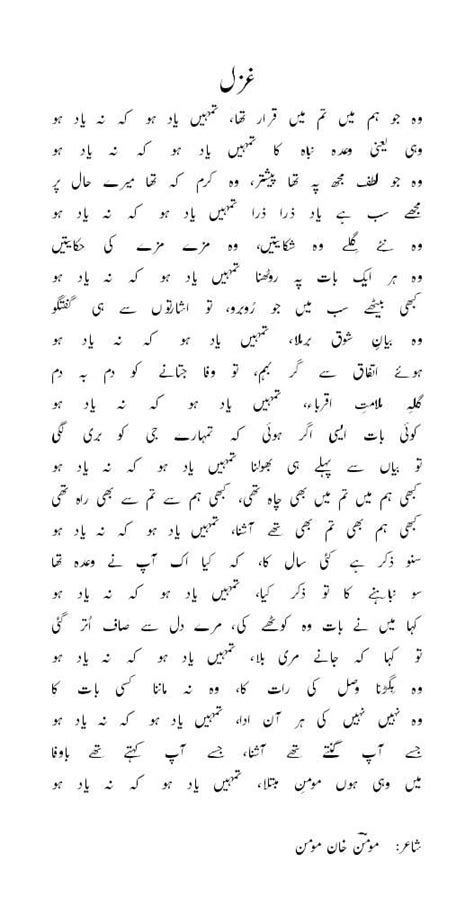 غزل
وہ جو ہم میں تم میں قرار تھا، تمہیں یاد ہو کہ نہ یاد ہو
وہی یعنی وعدہ نباہ کا تمہیں یاد ہو کہ نہ یاد ہو
وہ جو لطف مجھ پہ تھا پیشتر، وہ کرم کہ تھا میرے حال پر
مجھے سب ہے یاد ذرا ذرا تمہیں یاد ہو کہ نہ یاد ہو
وہ نئے گِلے وہ شکایتیں، وہ مزے مزے کی حکایتیں
وہ ہر ایک بات پہ روٹھنا تمہیں یاد ہو کہ نہ یاد ہو
کبھی بیٹھے سب میں جو رُوبرو، تو اشارتوں سے ہی گفتگو
وہ بیانِ شوق برملا، تمہیں یاد ہو کہ نہ یاد ہو
ہوئے اتفاق سے گر بہم، تو وفا جتانے کو دم بہ دم
گلہِ ملامتِ اقرباء، تمہیں یاد ہو کہ نہ یاد ہو
کوئی بات ایسی اگر ہوئی کہ تمہارے جی کو بری لگی
تو بیاں سے پہلے ہی بھولنا تمہیں یاد ہو کہ نہ یاد ہو
کبھی ہم میں تم میں بھی چاہ تھی، کبھی ہم سے تم سے بھی راہ تھی
کبھی ہم بھی تم بھی تھے آشنا، تمہیں یاد ہو کہ نہ یاد ہو
سنو ذکر ہے کئی سال کا، کہ کیا اک آپ نے وعدہ تھا
سو نباہنے کا تو ذکر کیا، تمہیں یاد ہو کہ نہ یاد ہو
کہا میں نے بات وہ کوٹھے کی، مرے دل سے صاف اُتر گئی
تو کہا کہ جانے مری بلا، تمہیں یاد ہو کہ نہ یاد ہو
وہ بگڑنا وصل کی رات کا، وہ نہ ماننا کسی بات کا
وہ نہیں نہیں کی ہر آن ادا، تمہیں یاد ہو کہ نہ یاد ہو
جسے آپ گنتے تھے آشنا، جسے آپ کہتے تھے باوفا
میں وہی ہوں مومنِ مبتلا، تمہیں یاد ہو کہ نہ یاد ہو
شاعر: مومنؔ خان مومن